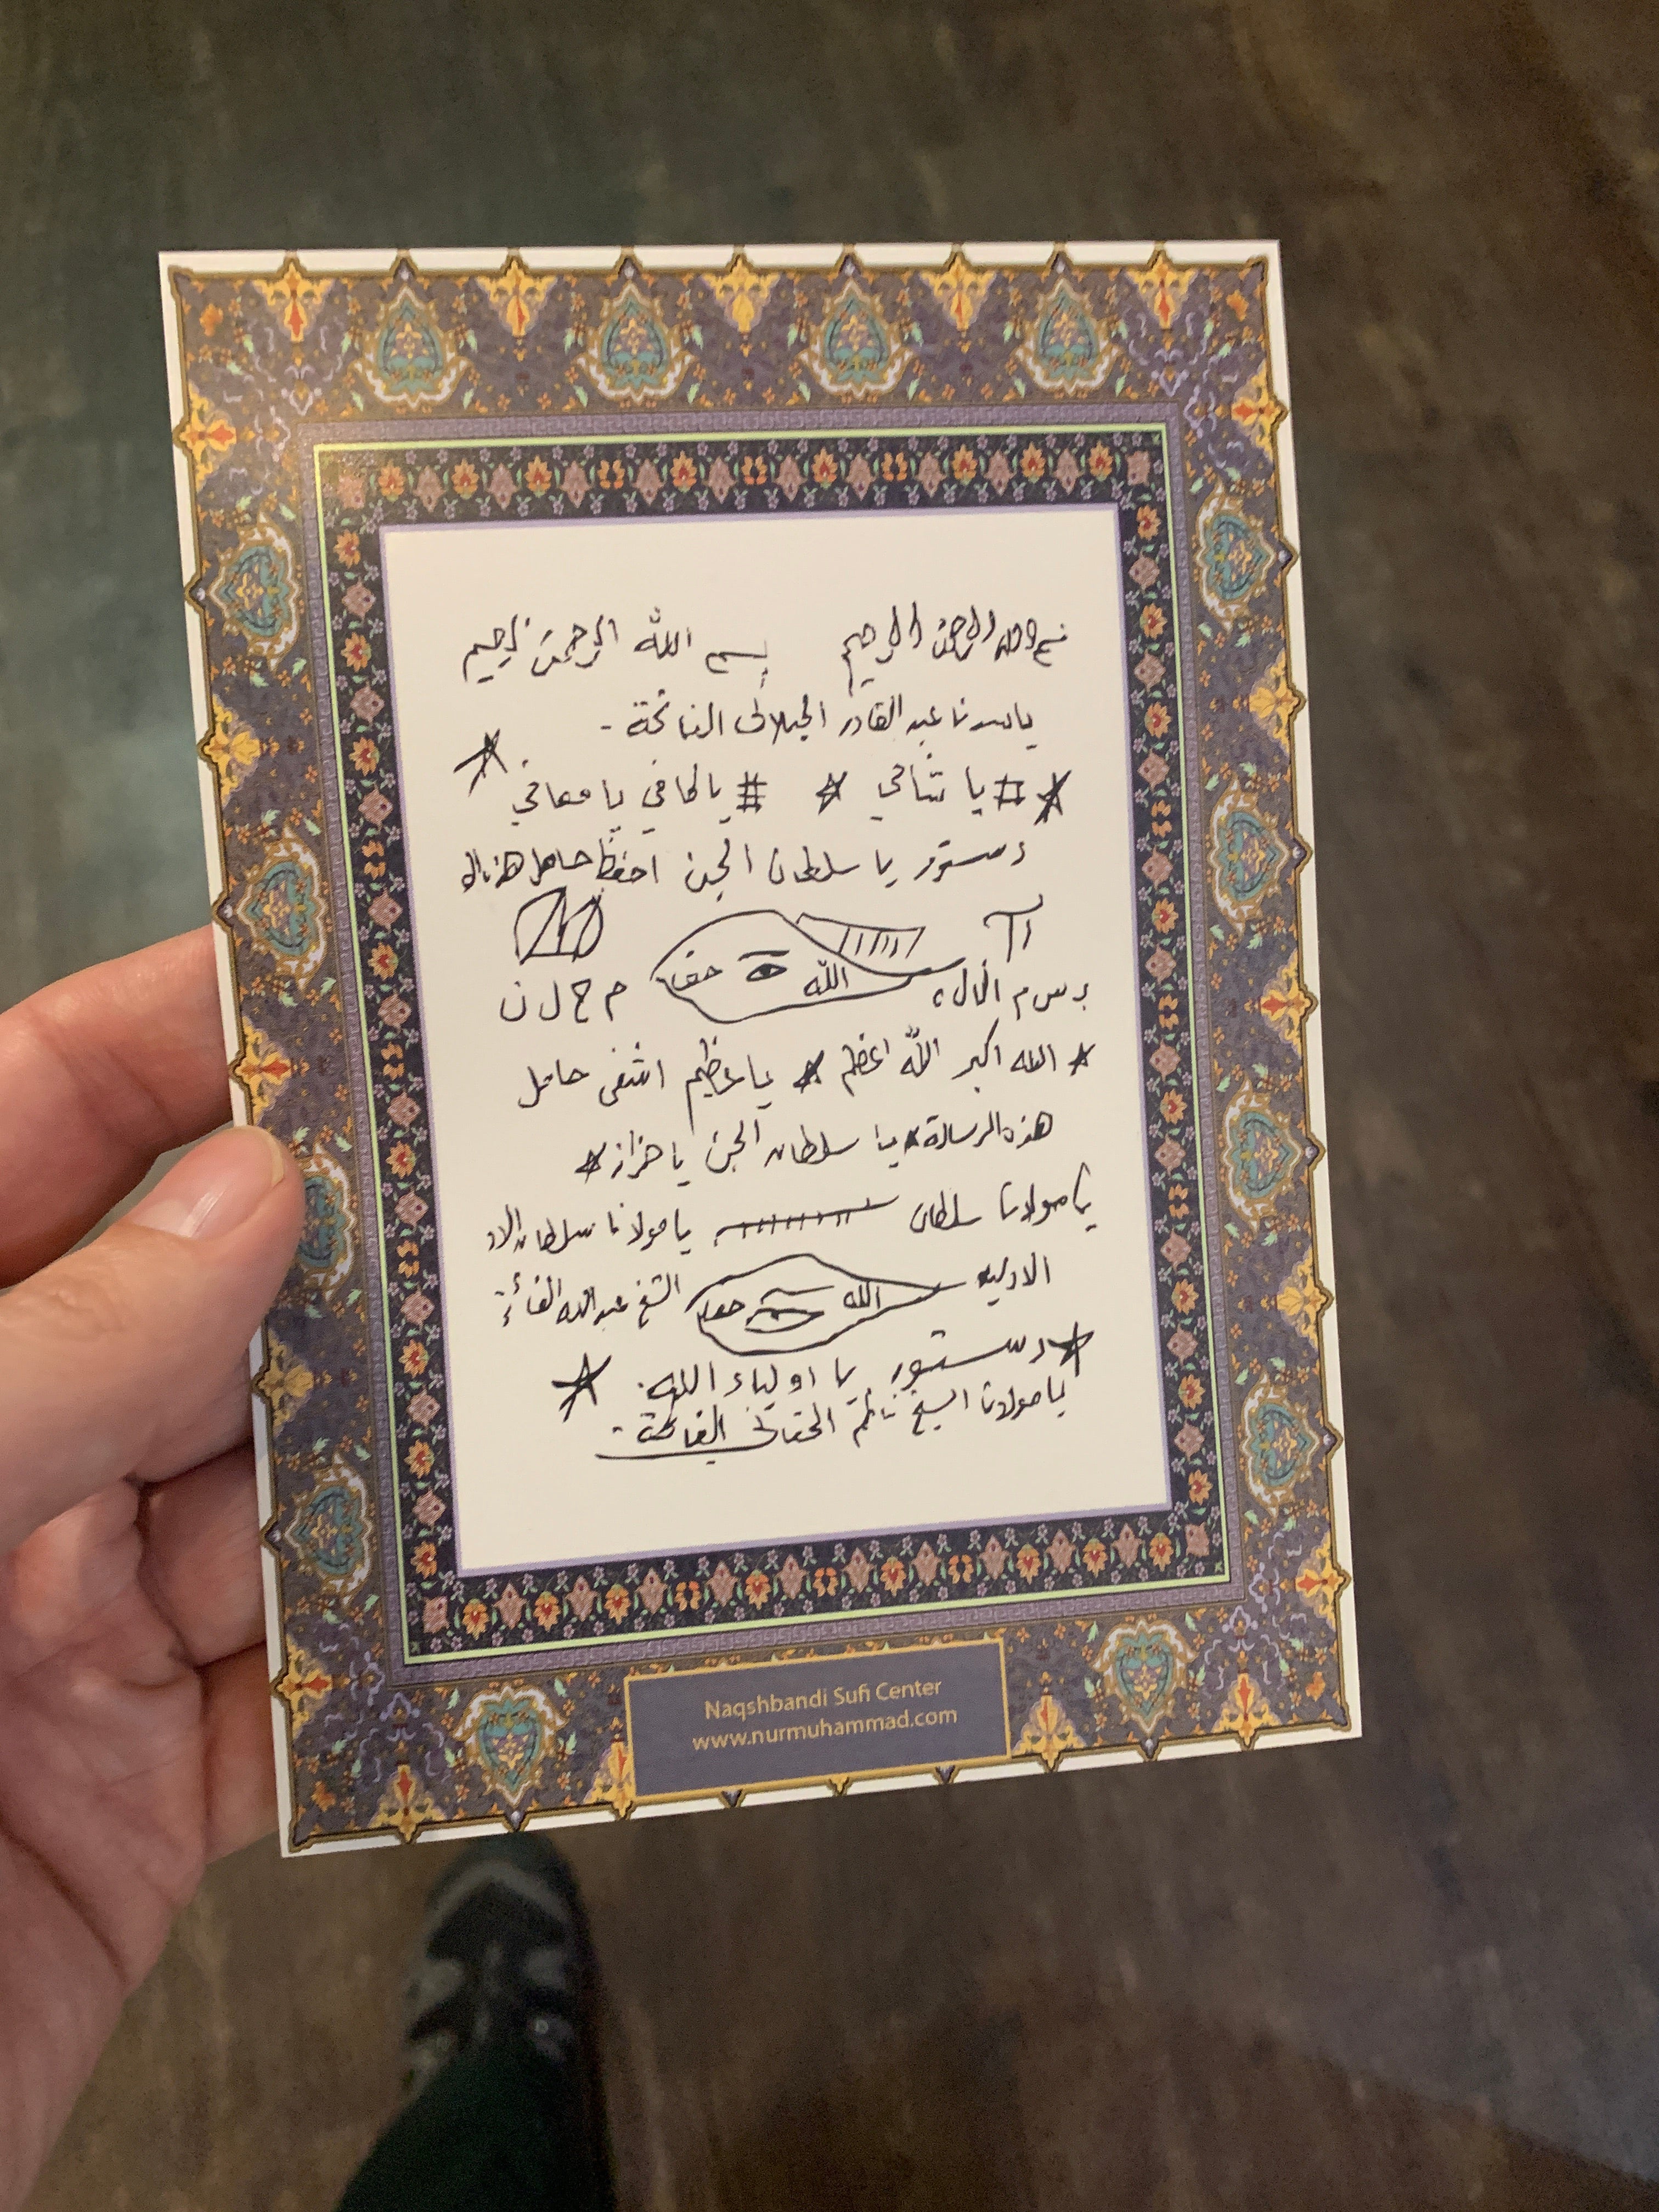 بسم الله الرحمن الرحيم بسم الله الرحمن الرحيم
يا سيدنا عبد القادر الجيلاني الفاتحة -
# يا شافي # يا كافي يا معافي
دستور يا سلطان الجن احفظ حامل هذه
الله حق
م ح ل ن
الله اكبر الله اعظم يا عظيم اشفى حامل
هذه الرسالة يا سلطان الجن يا
يا مولانا سلطان يا مولانا سلطان
الله الشيخ عبد الله
دستور يا اولياء الله.
يا مولانا الشيخ ناظم الحقاني الفاتحة -
Naqshbandi Sufi Center
www.nurmuhammad.com